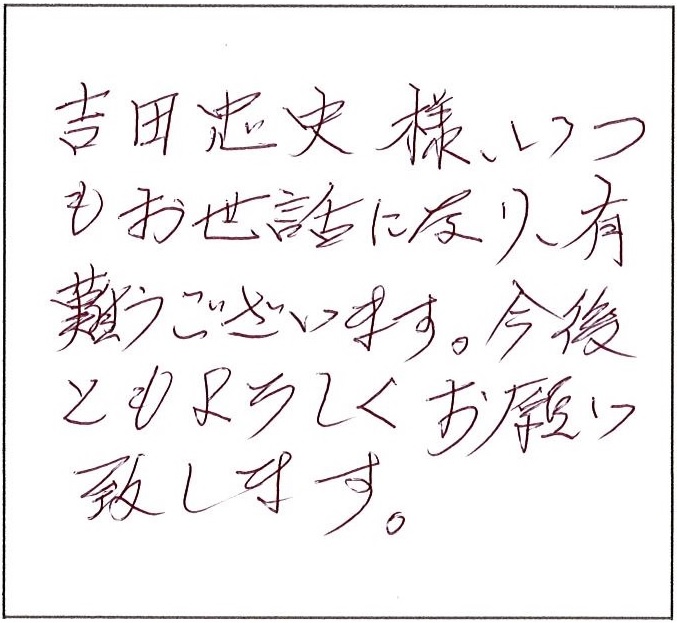 吉田忠史 様、いつ
もお世話になり、有
難うございます。今後
ともよろしくお願い
致します。